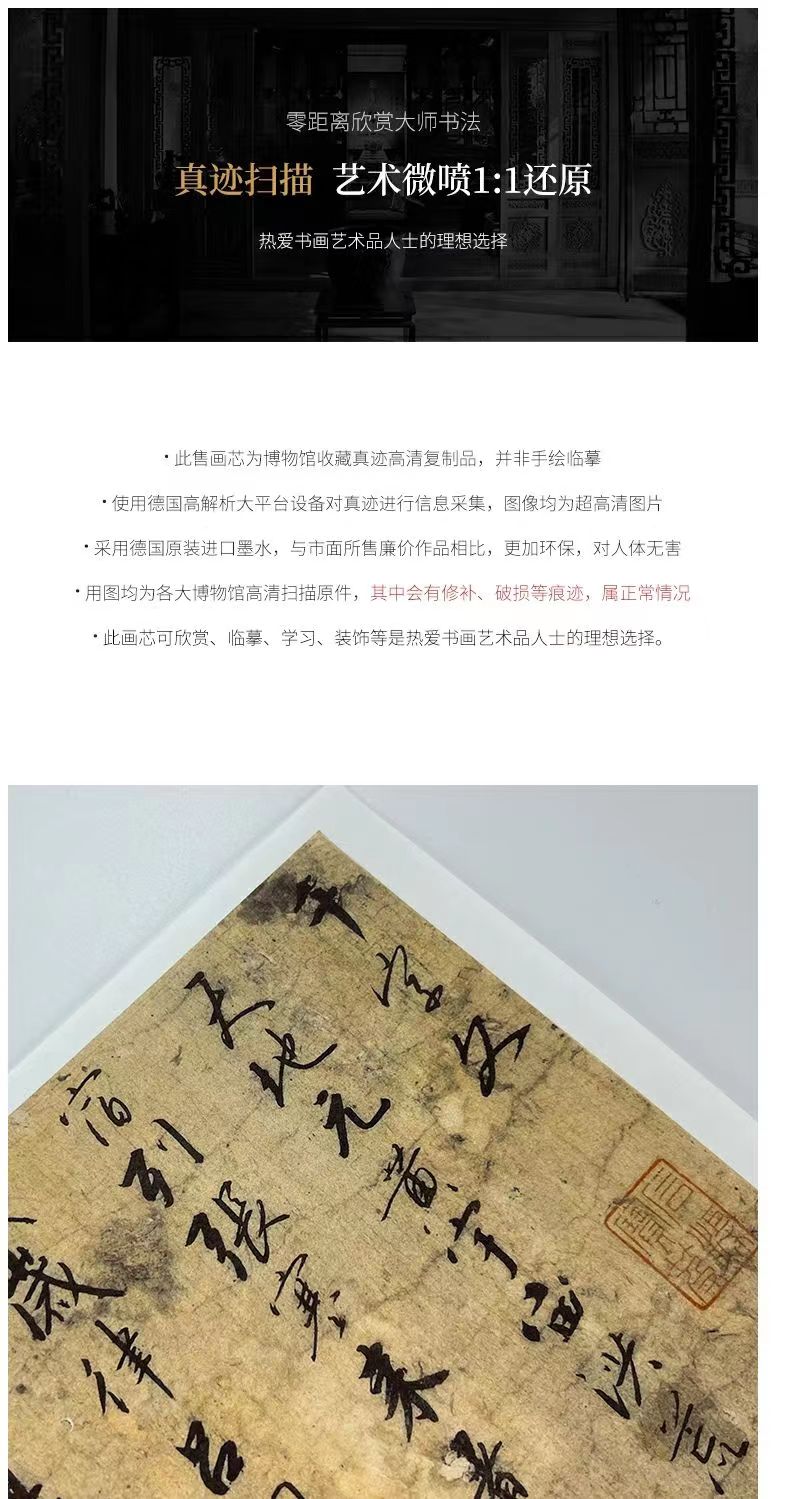 零距离欣赏大师书法
真迹扫描 艺术微喷1:1还原
热爱书画艺术品人士的理想选择
·此售画芯为博物馆收藏真迹高清复制品，并非手绘临摹
·使用德国高解析大平台设备对真迹进行信息采集，图像均为超高清图片
·采用德国原装进口墨水，与市面所售廉价作品相比，更加环保，对人体无害
·用图均为各大博物馆高清扫描原件，其中会有修补、破损等痕迹，属正常情况
·此画芯可欣赏、临摹、学习、装饰等是热爱书画艺术品人士的理想选择。
千字文
天地元黄宇宙洪荒
宿列张寒来暑
歲律吕